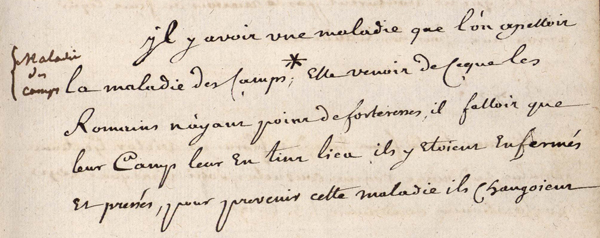 Maladie
des
camps
yl y avoit une maladie que l'on apelloit
la maladie des Camps*; Elle venoit de Ceque les
Romains n'ayant point de forteresses, il falloit que
leur Camp leur En tint lieu, ils y Etoient Enfermés
Et pressés, pour prevenir cette maladie ils Changoient